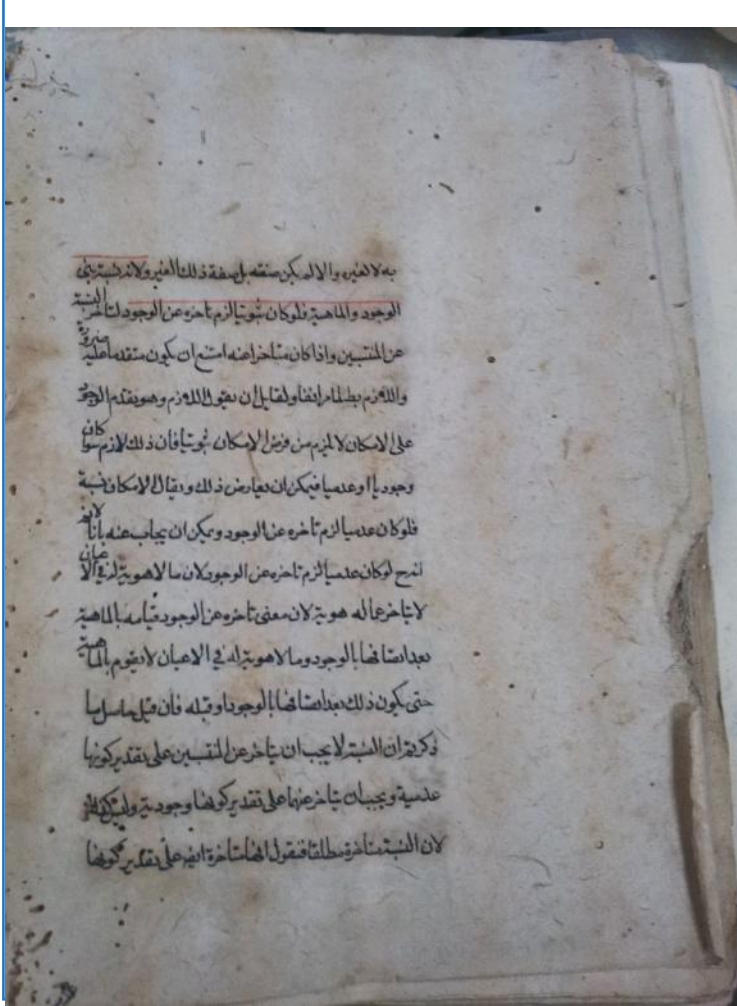 به لا لغيره والا لم يكن صفته بل صفة ذلك الغير ولانه نسبة بين
الوجود والماهية فلو كان ثبوتيا لزم تاخره عن الوجود لتاخر النسبة
عن المنتسبين واذا كان متاخرا عنه امتنع ان يكون متقدما عليه ضرورة
واللازم بط لما مر انفا ولقايل ان يقول اللازم وهو تقدم الوجود
على الامكان لا يلزم من فرض الامكان ثبوتيا فان ذلك لازم سوا كان
وجوديا او عدميا فيمكن ان يعارض ذلك ويقال الامكان نسبة
فلو كان عدميا لزم تاخره عن الوجود ويمكن ان يجاب عنه بانا لانم
انه ح لو كان عدميا لزم تاخره عن الوجود لان ما لا هوية له في الاعيان
لا يتاخر عما له هوية لان معنى تاخره عن الوجود قيامه بالماهية
بعد اتصافها بالوجود وما لا هوية له في الاعيان لا يقوم بالماهية
حتى يكون ذلك بعد اتصافها بالوجود او قبله فان قيل حاصل ما
ذكرتم ان النسبة لا يجب ان يتاخر عن المنتسبين على تقدير كونها
عدمية ويجب ان يتاخر عنهما على تقدير كونها وجودية وليس كذلك
لان النسبة متاخرة مطلقا فنقول انها متاخرة ايضا على تقدير كونها